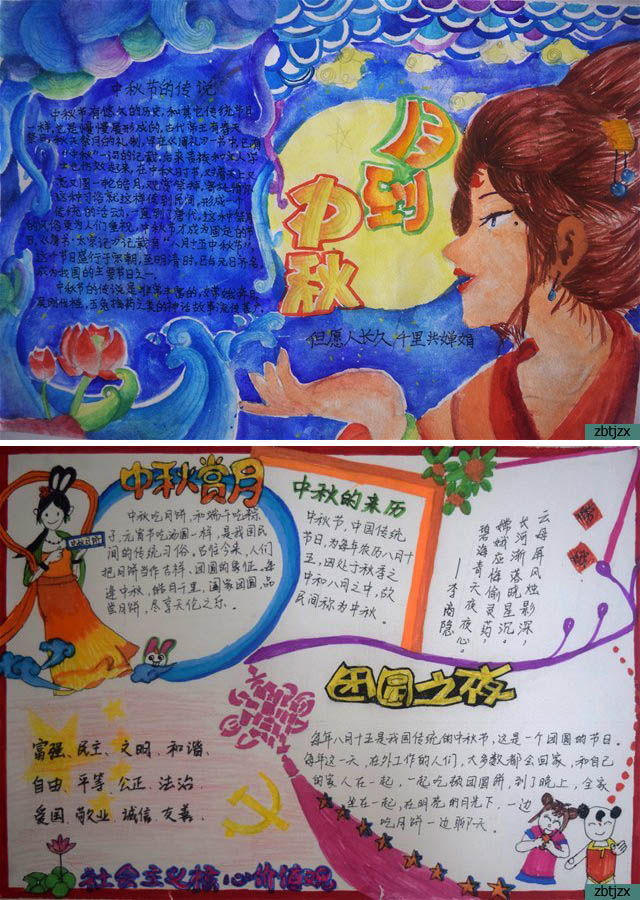 中秋节的传说
中秋节有悠久的历史,和其它传统节日
一样,也是慢慢发形成的,古代帝王有春天
祭日,秋天祭月的礼制,早在《周礼》一书中,已有
“中秋”一词的记载。后来贵族和文人学
士也仿效起来,在中秋时节,对着天上又
亮又圆一轮皓月,观赏祭拜,寄托情怀
这种习俗就这样传到民间,形成一个
传统的活动,一直到了唐代,这种祭月
的风俗更为人们重视,中秋节才成为固定的节
日,《唐书·太宗记》记载有“八月十五中秋节”,
这个节日盛行于宋朝,至明清时,已与元旦齐名,
成为我国的主要节日之一。
中秋节的传说是非常丰富的,嫦娥奔月,
吴刚伐桂,玉兔捣药之类的神话故事流传甚广。
月到
中秋
但愿人长久,千里共婵娟
zbtjzx
中秋赏月
中秋吃月饼,和端午吃粽
子,元宵节吃汤圆一样,是我国民
间的传统习俗,古往今来,人们
把月饼当作吉祥、团圆的象征。每
逢中秋,皓月千里,阖家团圆,品
尝月饼,尽享天伦之乐。
中秋的来历
中秋节,中国传统
节日,为每年农历八月十
五,因处于秋季之
中和八月之中,故
民间称为中秋。
云母屏风烛影深,
长河渐落晓星沉。
嫦娥应悔偷灵药,
碧海青天夜夜心。
——李商隐
团圆之夜
每年八月十五是我国传统的中秋节,这是一个团圆的节日。
每年这一天,在外工作的人们,大多数都会回家,和自己
的家人在一起,一起吃顿团圆饼,到了晚上,全家
坐在一起,在明亮的月光下,一边
吃月饼一边聊天。
富强、民主、文明、和谐、
自由、平等、公正、法治、
爱国、敬业、诚信、友善、
社会主义核心价值观
zbtjzx